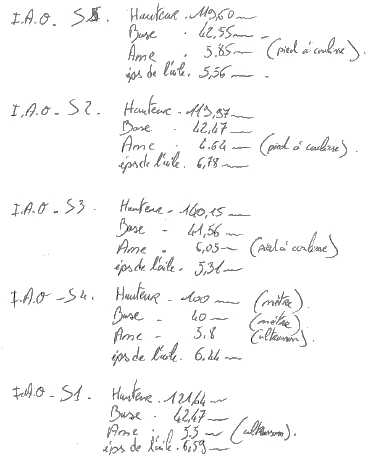 I.A.O - S5. Hauteur . 119,60 mm
Base . 42,55 mm
Ame . 5,85 mm (pied à coulisse).
éps de l'aile . 5,56 mm .
I.A.O - S2. Hauteur . 119,97 mm
Base . 42,47 mm
Ame . 4.64 mm (pied à coulisse).
éps de l'aile . 6,78 mm
I.A.O - S3. Hauteur - 140,15 mm
Base - 41,56 mm
Ame . 6,05 mm (pied à coulisse)
éps de l'aile . 5,31 mm
I.A.O - S4. Hauteur - 100 mm (mètre)
Base - 40 mm (mètre)
Ame - 5.8 (ultrason).
éps de l'aile . 6,44 mm
I.A.O - S1. Hauteur . 121,64 mm
Base . 42,47 mm
Ame : 5,5 mm (ultrason).
éps de l'aile . 6,59 mm